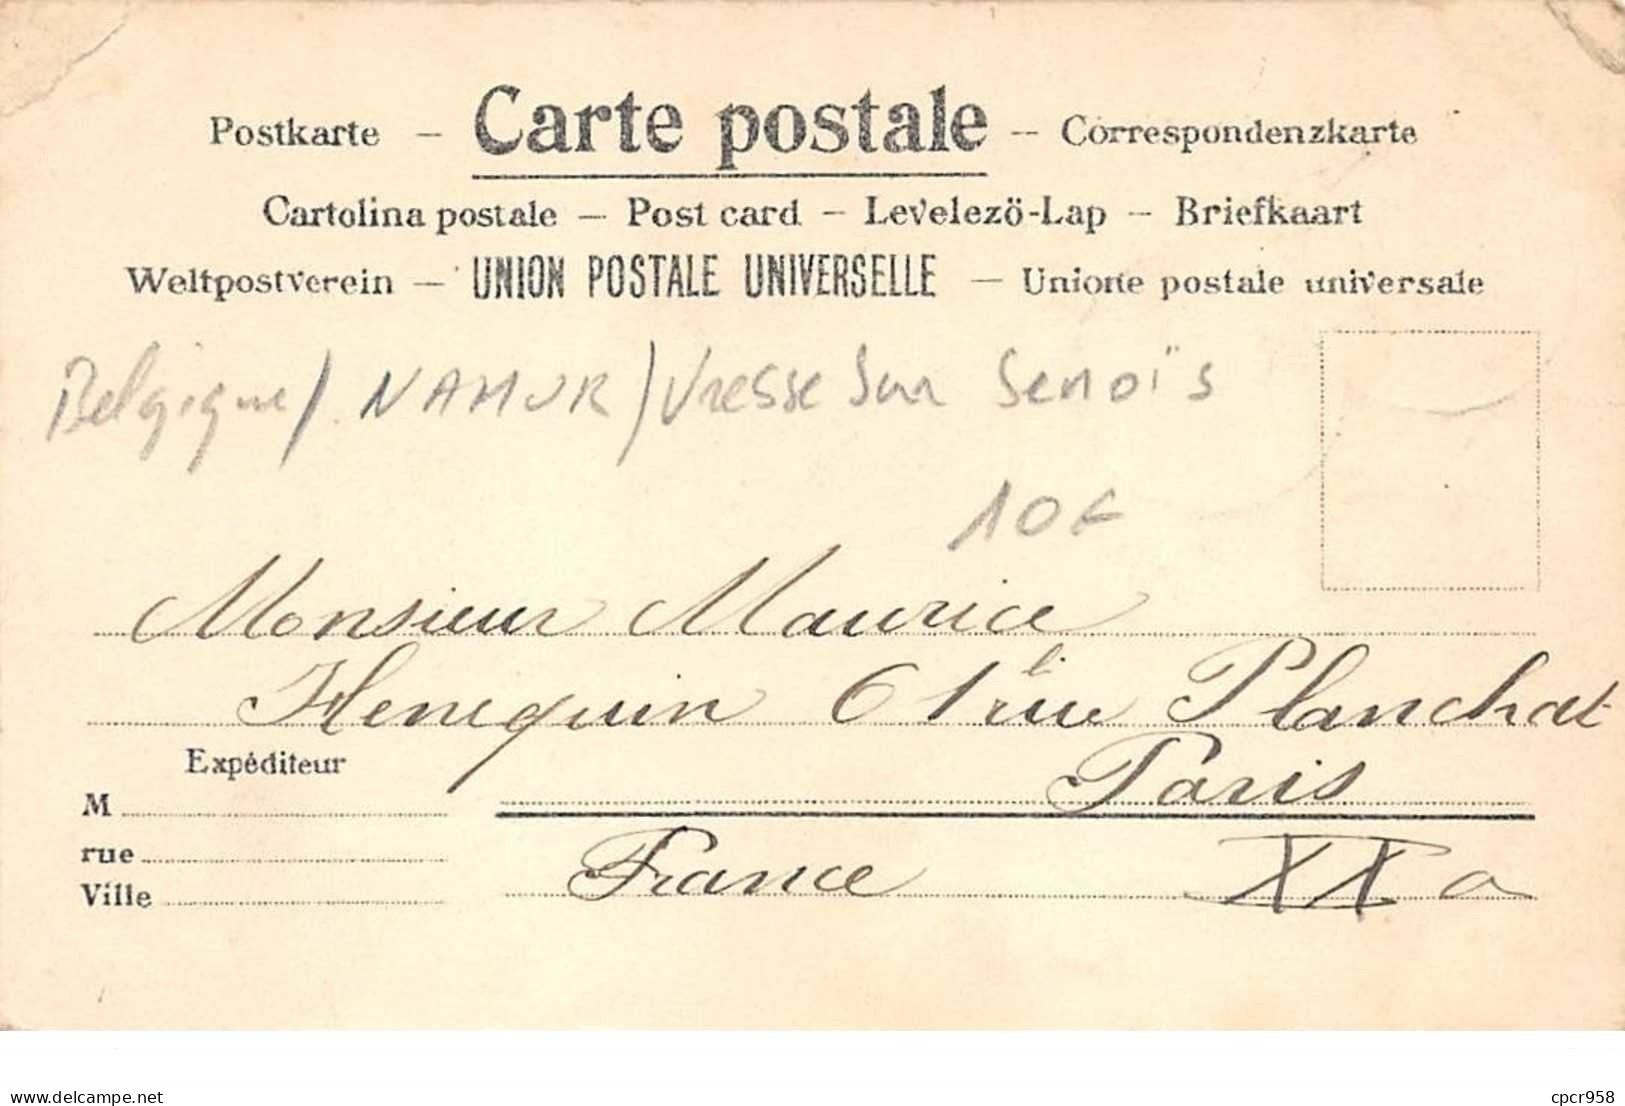 Postkarte – Carte postale – Correspondenzkarte
Cartolina postale – Post card – Levelezö-Lap – Briefkaart
Weltpostverein – UNION POSTALE UNIVERSELLE – Unione postale universale
Belgique / NAMUR / Vresse Sur Semoïs
10€
Monsieur Maurice
Henequin 61 rue Planchat
Paris
France XXe
Expéditeur
M
rue
Ville
delcampe.net
cpcr958